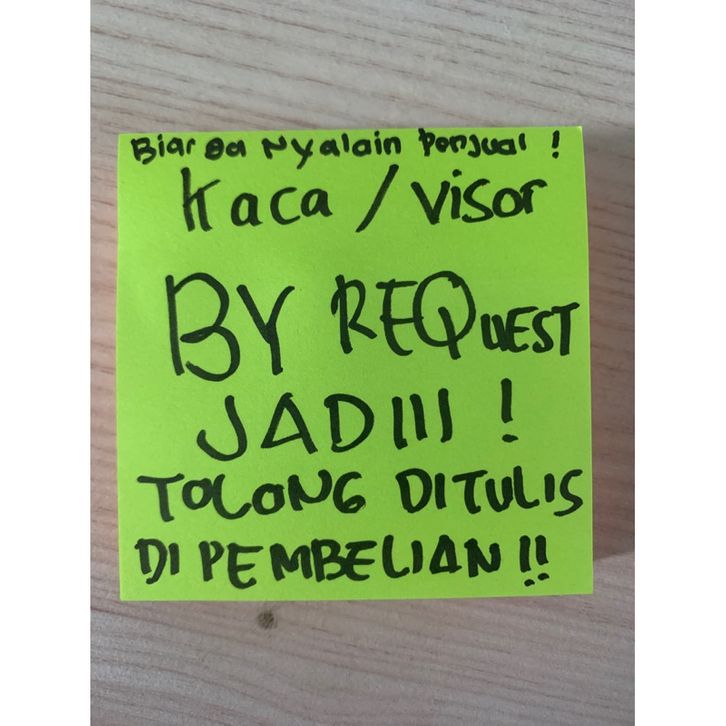 Biar Ga Nyalain Penjual !
Kaca / Visor
BY REQUEST
JADIII !
TOLONG DITULIS
DI PEMBELIAN !!